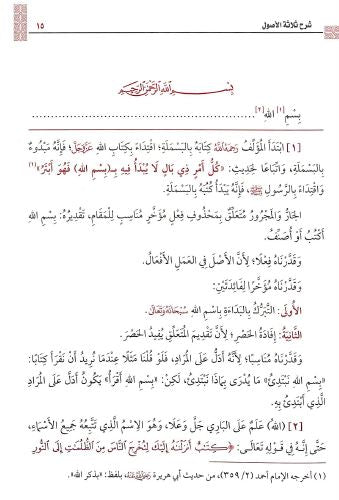 شرح ثلاثة الأصول
١٥
بِسْمِ اللَّهِ الرَّحْمَنِ الرَّحِيمِ
بِسْمِ [١] اللهِ [٢] ........................................
[١] ابْتَدَأَ الْمُؤَلِّفُ رَحِمَهُ اللَّهُ كِتَابَهُ بِالْبَسْمَلَةِ؛ اقْتِدَاءً بِكِتَابِ اللهِ عَزَّوَجَلَّ؛ فَإِنَّهُ مَبْدُوءٌ
بِالْبَسْمَلَةِ، وَاتِّبَاعًا لِحَدِيثِ: «كُلُّ أَمْرٍ ذِي بَالٍ لَا يُبْدَأُ فِيهِ بِـ(بِسْمِ اللهِ) فَهُوَ أَبْتَرُ» (١)
وَاقْتِدَاءً بِالرَّسُولِ ﷺ، فَإِنَّهُ يَبْدَأُ كُتُبَهُ بِالْبَسْمَلَةِ.
الْجَارُّ وَالْمَجْرُورُ مُتَعَلِّقٌ بِمَحْذُوفٍ فِعْلٍ مُؤَخَّرٍ مُنَاسِبٍ لِلْمَقَامِ، تَقْدِيرُهُ: بِسْمِ اللهِ
أَكْتُبُ أَوْ أُصَنِّفُ.
وَقَدَّرْنَاهُ فِعْلًا؛ لِأَنَّ الْأَصْلَ فِي الْعَمَلِ الْأَفْعَالُ.
وَقَدَّرْنَاهُ مُؤَخَّرًا لِفَائِدَتَيْنِ:
الْأُولَى: التَّبَرُّكُ بِالْبَدَاءَةِ بِاسْمِ اللهِ سُبْحَانَهُ وَتَعَالَى.
الثَّانِيَةُ: إِفَادَةُ الْحَصْرِ؛ لِأَنَّ تَقْدِيمَ الْمُتَعَلِّقِ يُفِيدُ الْحَصْرَ.
وَقَدَّرْنَاهُ مُنَاسِبًا؛ لِأَنَّهُ أَدَلُّ عَلَى الْمُرَادِ، فَلَوْ قُلْنَا مَثَلًا عِنْدَمَا نُرِيدُ أَنْ نَقْرَأَ كِتَابًا:
«بِسْمِ اللهِ نَبْتَدِئُ» مَا يُدْرَى بِمَاذَا نَبْتَدِئُ، لَكِنْ: «بِسْمِ اللهِ أَقْرَأُ» يَكُونُ أَدَلَّ عَلَى الْمُرَادِ
الَّذِي أَبْتَدِئُ بِهِ.
[٢] (اللهُ) عَلَمٌ عَلَى الْبَارِي جَلَّ وَعَلَا، وَهُوَ الِاسْمُ الَّذِي تَتْبَعُهُ جَمِيعُ الْأَسْمَاءِ،
حَتَّى إِنَّهُ فِي قَوْلِهِ تَعَالَى: ﴿كِتَٰبٌ أَنزَلْنَٰهُ إِلَيْكَ لِتُخْرِجَ ٱلنَّاسَ مِنَ ٱلظُّلُمَٰتِ إِلَى ٱلنُّورِ
(١) أخرجه الإمام أحمد (٢/ ٣٥٩)، من حديث أبي هريرة رَضِيَ اللَّهُ عَنْهُ، بلفظ: «بذكر الله».